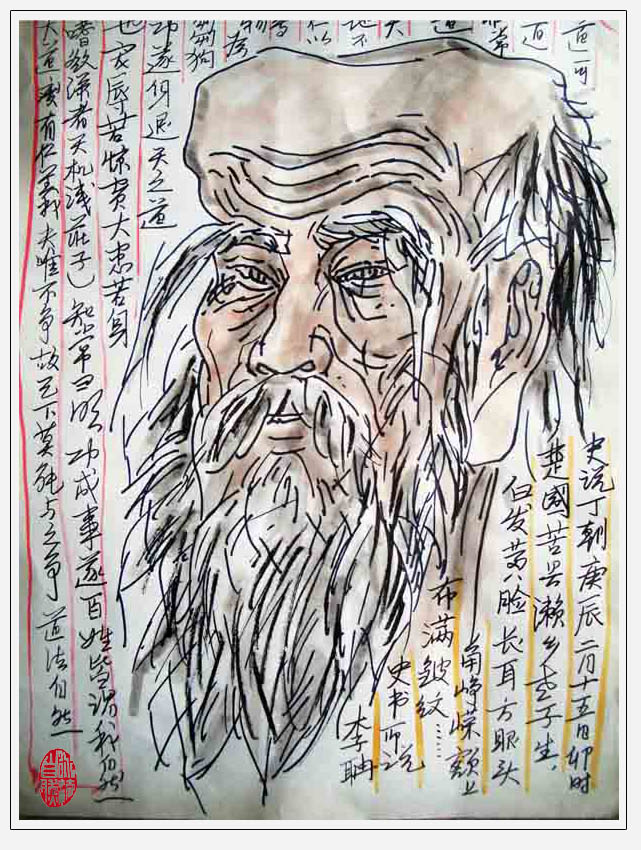 道可
道
非常
道
天
地不
仁以
物
為
狗
功遂身退天之道
宠辱若惊贵大患若身
嗜欲深者天机浅(莊子) 知常曰明 功成事遂百姓皆谓我自然
大道廢有仁義 夫唯不争故天下莫能与之争 道法自然
史说丁朝庚辰二月十五日卯时
楚國苦县濑乡老子生,
白发黄八脸长耳方眼头
角峥嵘额上
布满皱纹……
史书所说
李聃